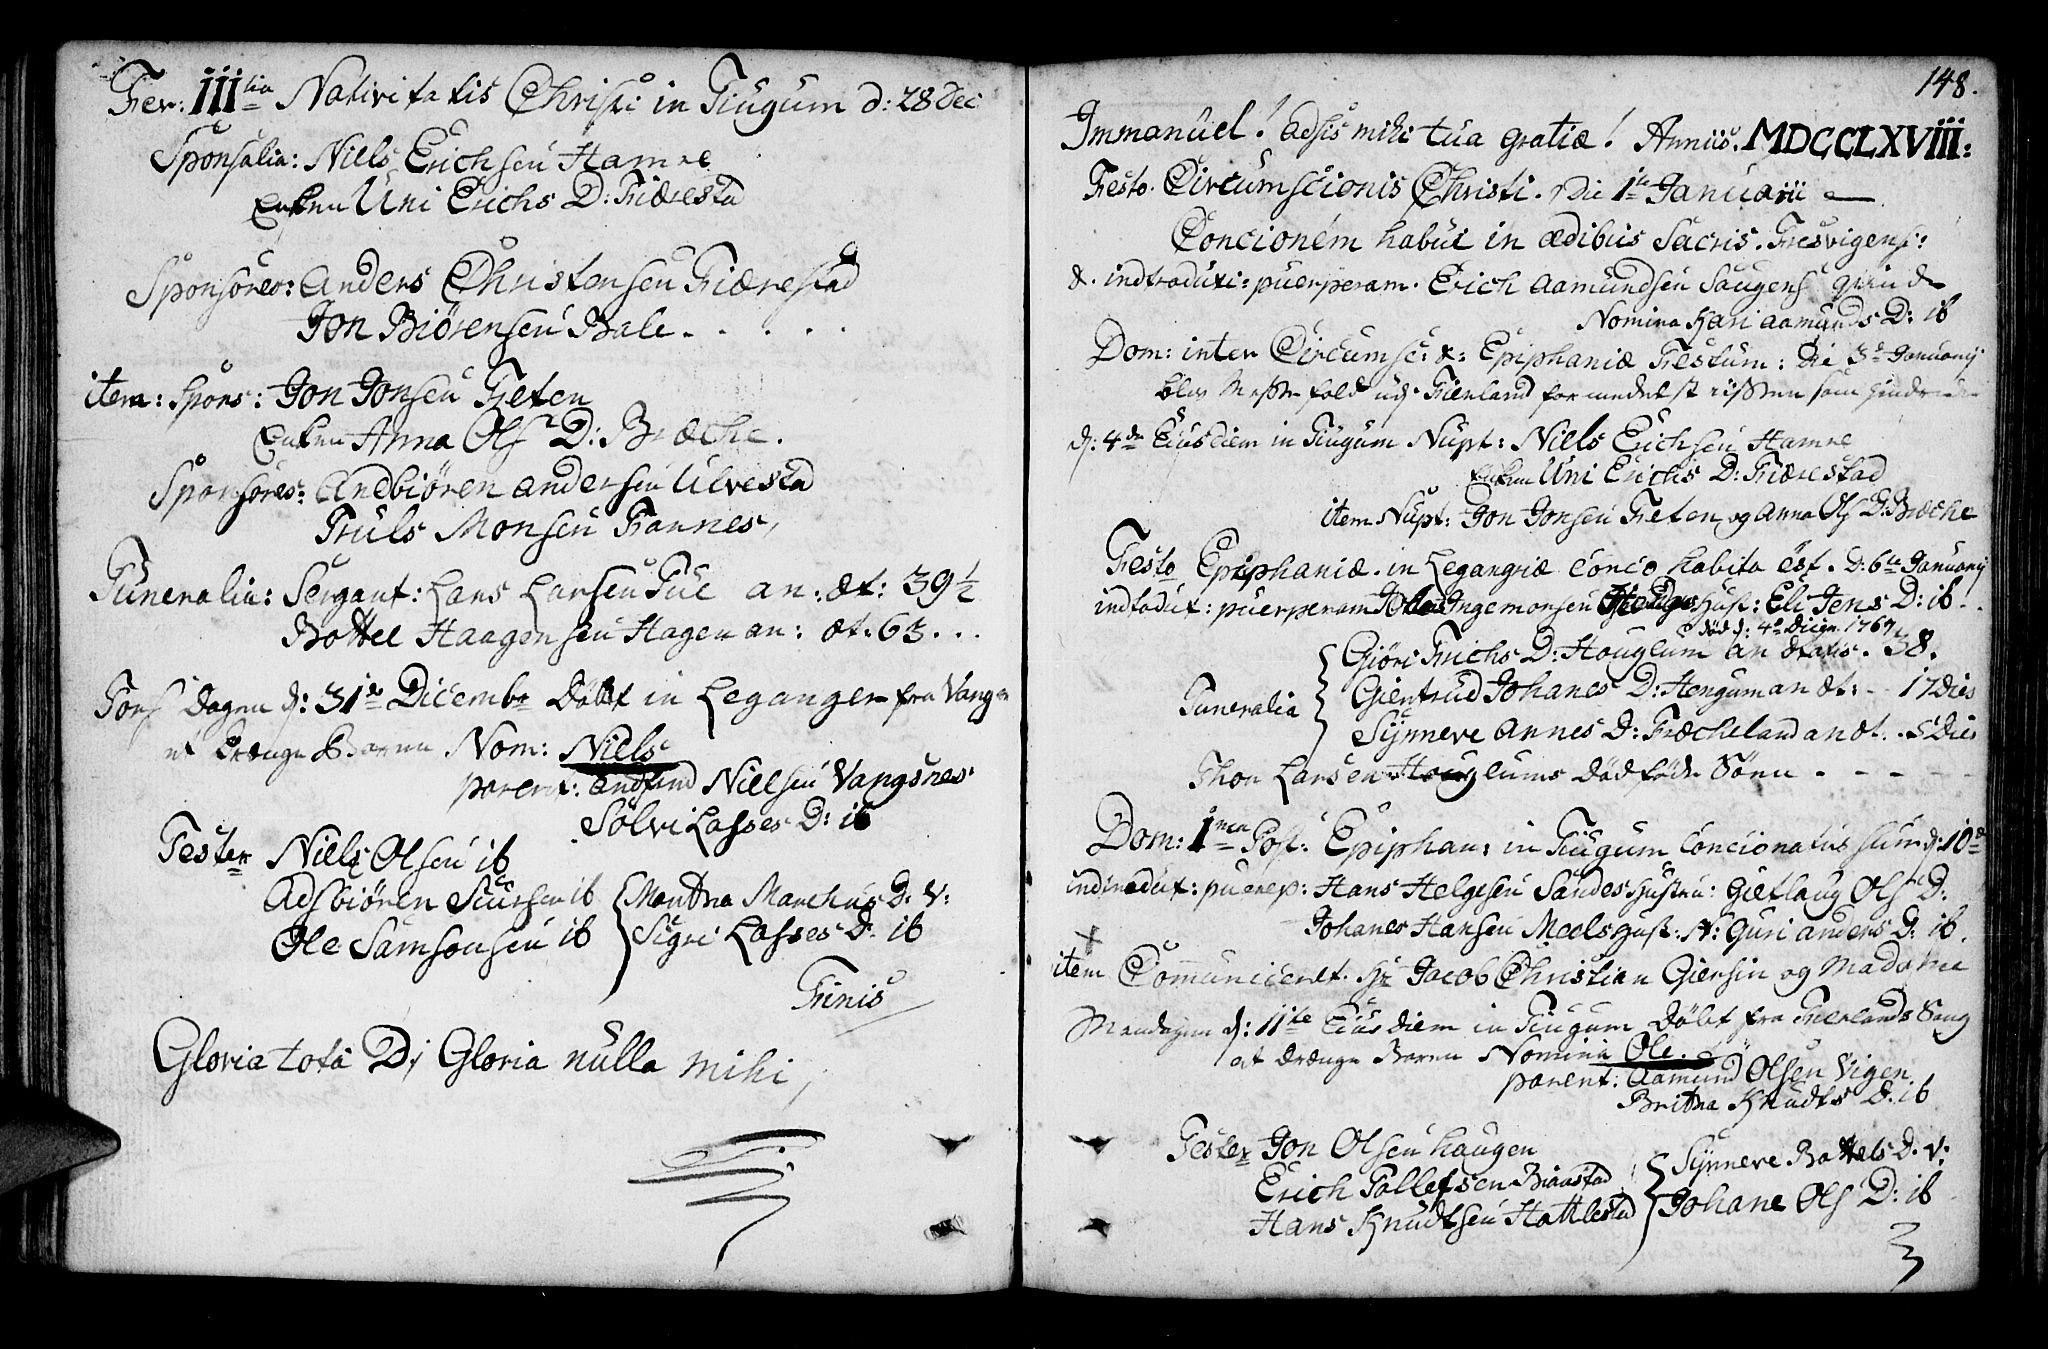 Fer: III tia Nativitatis Christi in Tiugum d: 28 Dec
Sponsalia: Niels Erichsen Hamre
Enken Uni Erichs D: Fiærestad
Sponsores: Anders Christensen Fiærestad
Jon Biörensen Bale - . . . .
item: Spons: Jon Jonsen Feten
Enken Anna Ols D: Bræche.
Sponsores: Andbiören Andersen Ulvestad
Truls Monsen Fannes,
Funeralia: Sergant: Lars Larsen Tue an: æt: 39½
Bottel Haagensen Hagen an: æt: 63 . . .
Torsdagen d: 31te Dicembr Döbt in Leganger fra Vangs
et Drænge Baren Nom: Niels
parent: Andfind Nielsen Vangsnes
Sölvi Lasses D: ib
Tester Niels Olsen ib
Adsbiören Siursen ib { Maritha Marchus D. V:
Ole Samsonsen ib { Sigri Lasses D. ib
Finis
Gloria tota Dj Gloria nulla mihi,
148.
Immanuel! adsis mihi tua gratiæ! Anniis. MDCCLXVIII:
Festo. Circumscionis Christi. Die 1te Januarii
Concionem habui in ædibus Sacris. Fresvigens:
&. indtroduti: puerperam. Erich Aamundsen Saugens
Nomina Kari Aamunds D: ib
Dom: inter Circumsc: &: Epiphaniæ Festum: Die 3d Januarij
blev Messefald udj Fierland formedelst iissen som hindrede
d: 4de Eiusdiem in Tiugum Nupt: Niels Erichsen Hamre
Enken Uni Erichs D: Fiærestad
item Nupt: Jon Jonsen Feten og Anna Ols D: Bræche
Festo Epiphaniæ. in Legangriæ Concio habita est. D: 6te Januarij
indtodut: puerperam Ingemonsen Hust: Eli Jens D: ib. .
död d: 4de Dicem. 1767
Giöri Erichs D: Houglum an ætatis. 38.
Funeralia { Giertrud Johanes D: Henguman æt: - 17 Dies
Synneve Annes D: Fræcheland an æt. . 5 Dies
Thor Larsen Houglums Dödföde Sönn - - - -
Dom: 1ma Post. Epiphan: in Tiugum Concionatus sum d: 10de
indtrodut: puerep: Hans Helgesen Sandes Hustru: Gietlaug Ols D:
Johanes Hansen Meels Hust: N: Guri Anders D: ib.
item Comuniceret. Hr Jacob Christian Giersin og Madame
Mandagen d: 11te Eius diem in Tiugum Döbt fra Fierlands Sang
et Drænge Baren Nomina Ole.
parent: Aamund Olsen Vigen
Britha Knudts D: ib
Tester Jon Olsen Haugen
Erich Pallesen Biaastad { Synneve Bottels D. V:
Hans Knudtsen Hattlestad { Johane Ols D: ib